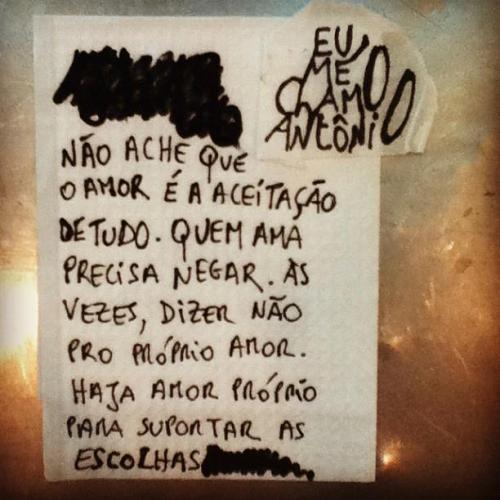 EU
ME
CHAMO
ANTÔNIO
NÃO ACHE QUE
O AMOR É A ACEITAÇÃO
DE TUDO. QUEM AMA
PRECISA NEGAR. ÀS
VEZES, DIZER NÃO
PRO PRÓPRIO AMOR.
HAJA AMOR PRÓPRIO
PARA SUPORTAR AS
ESCOLHAS